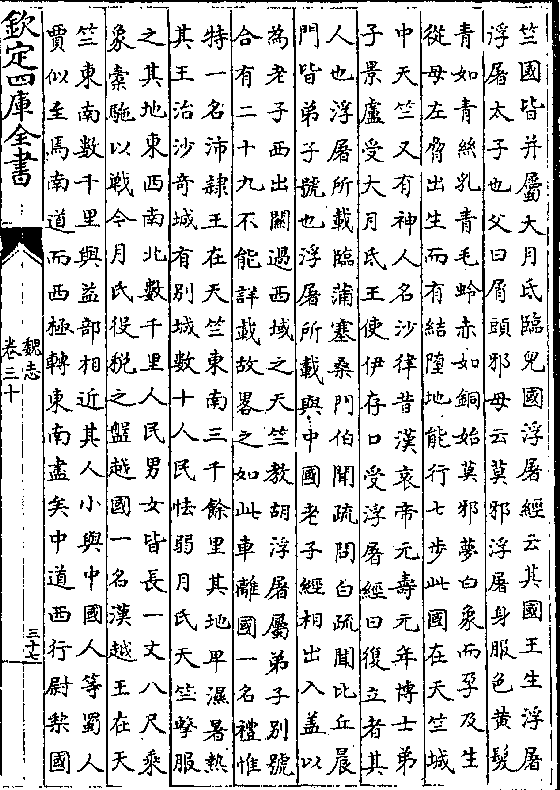 竺國皆并屬大月氐臨兒國浮屠經云其國王生浮屠
浮屠太子也父曰屑頭邪母云莫邪浮屠身服色黄髮
青如青絲乳青毛蛉赤如銅始莫邪夢白象而孕及生
從母左脅出生而有結墮地能行七步此國在天竺城
中天竺又有神人名沙律昔漢哀帝元壽元年博士弟
子景盧受大月氐王使伊存口受浮屠經曰復立者其
人也浮屠所載臨蒲塞桑門伯聞疏問白疏聞比丘晨
門皆弟子號也浮屠所載與中國老子經相出入蓋以
為老子西出關過西域之天竺教胡浮屠屬弟子别號
合有二十九不能詳載故畧之如此車離國一名禮惟
特一名沛隷王在天竺東南三千餘里其地卑濕暑熱
其王治沙奇城有别城數十人民怯弱月氏天竺擊服
之其地東西南北數千里人民男女皆長一丈八尺乘
象橐駞以戰今月氏役稅之盤越國一名漢越王在天
竺東南數千里與益部相近其人小與中國人等蜀人
賈似至焉南道而西極轉東南盡矣中道西行尉犂國
欽定四庫全書
魏志
卷三十
三十七